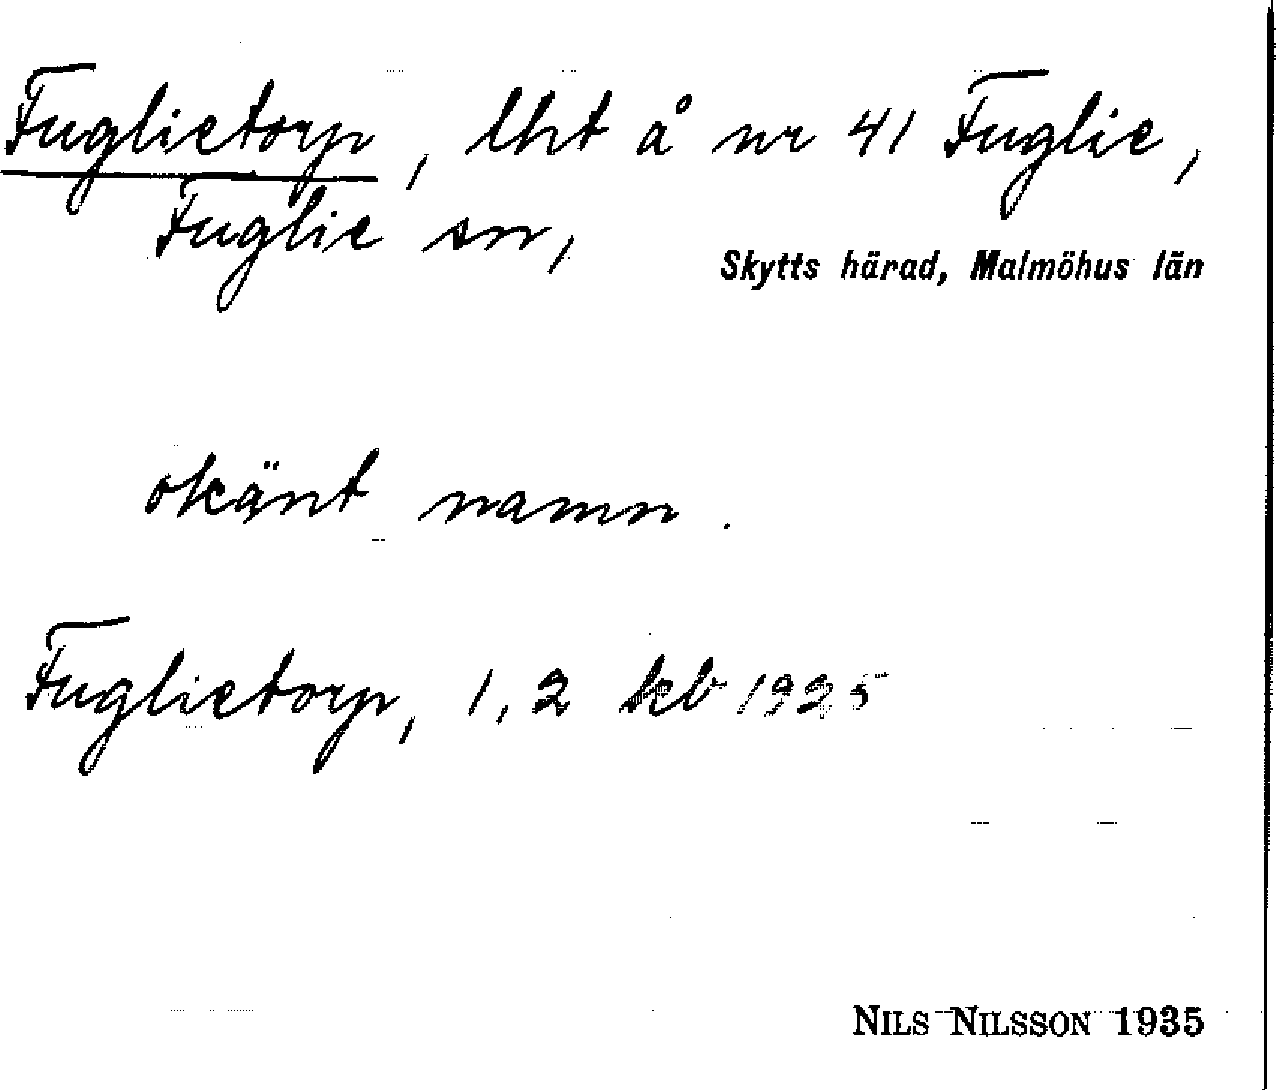 Fuglietorp, lht å nr 41 Fuglie,
Fuglie sn,
Skytts härad, Malmöhus län
okänt namn.
Fuglietorp, 1,2 kb 1925
NILS NILSSON 1935